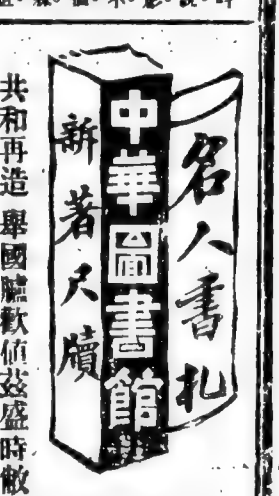 名人書札
中華圖書館
新著尺牘
共和再造舉國臚歡値茲盛時敝